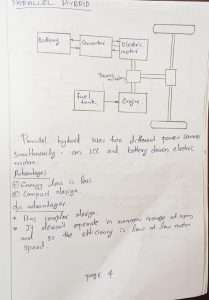 PARALLEL HYBRID
Battery
Converter
Electric
motor
Transmission
fuel
tank
Engine
Parallel hybrid uses two different power sources
simultaneously - an ICE and battery driven electric
motors.
Advantages
① Energy loss is less
② Compact design
disadvantages
* Has complex design.
* It doesnot operate in narrow range of rpm
and so the efficiency is low at low motor
speed.
page 4